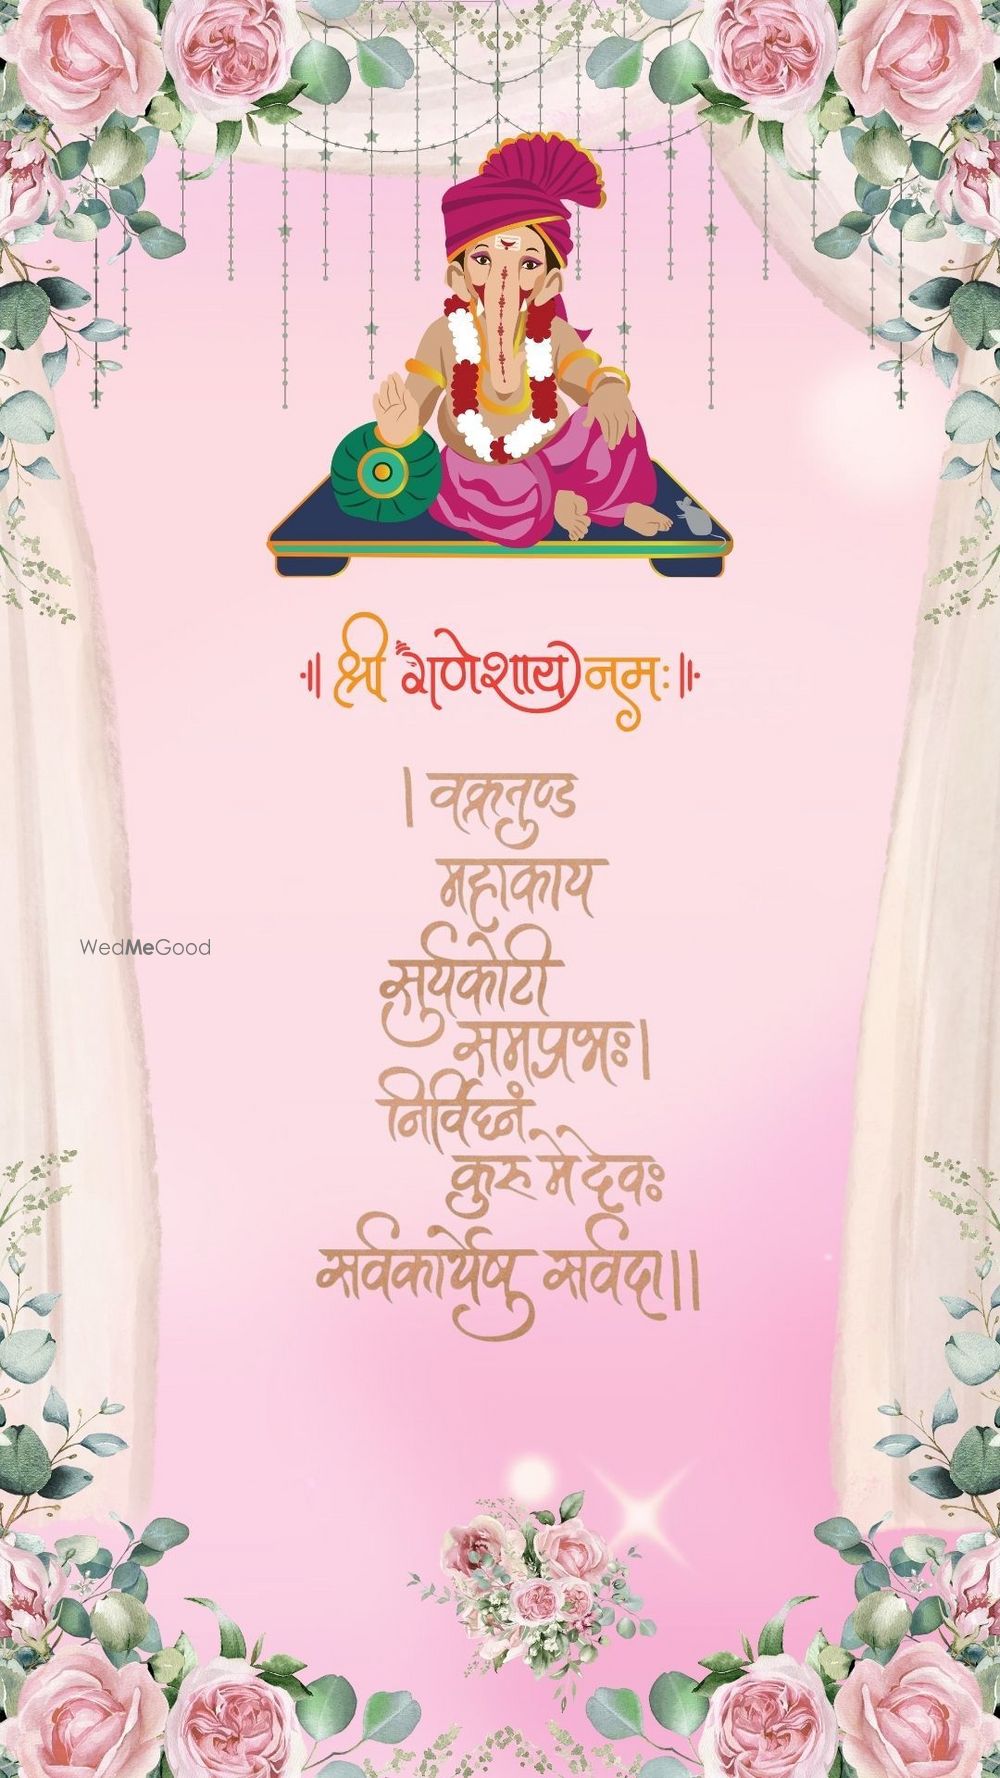 ॥ श्री गणेशाय नमः ॥
। वक्रतुण्ड
महाकाय
WedMeGood
सुर्यकोटी
समप्रभः।
निर्विघ्नं
कुरु मे देवः
सर्वकार्येषु सर्वदा॥